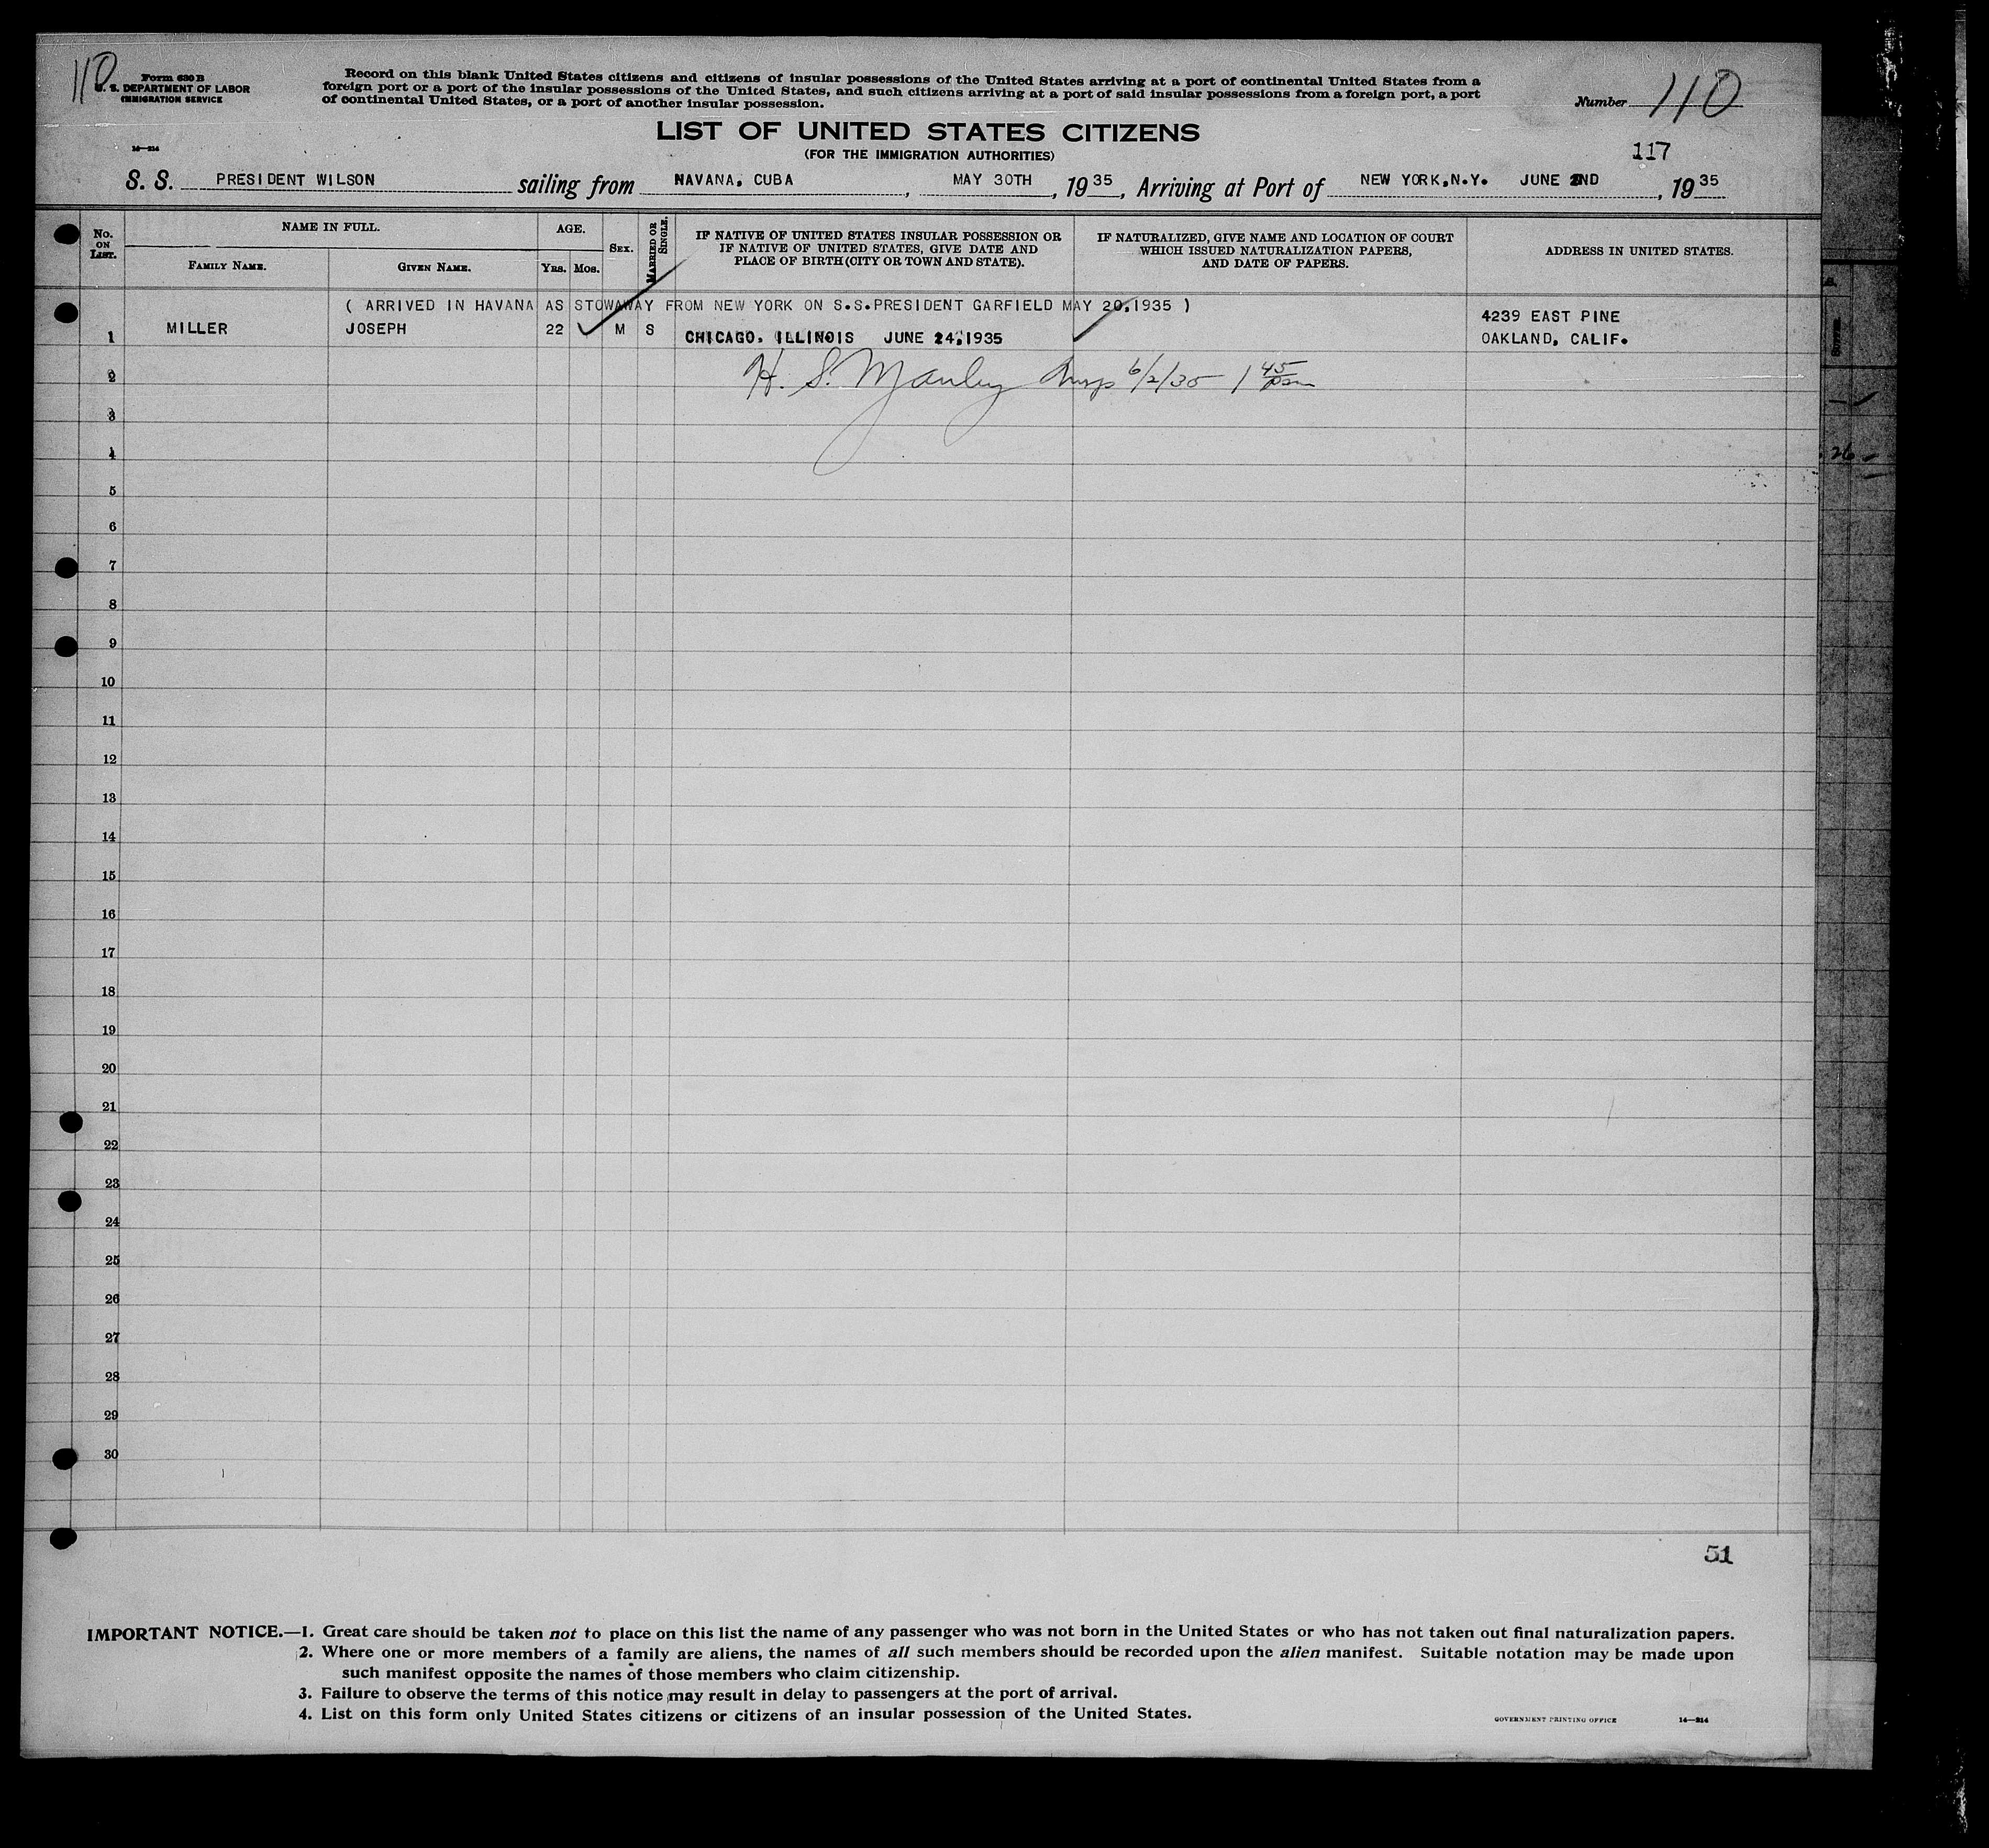 110
Form 630 B
U. S. DEPARTMENT OF LABOR
IMMIGRATION SERVICE
Record on this blank United States citizens and citizens of insular possessions of the United States arriving at a port of continental United States from a
foreign port or a port of the insular possessions of the United States, and such citizens arriving at a port of said insular possessions from a foreign port, a port
of continental United States, or a port of another insular possession.
Number 110
LIST OF UNITED STATES CITIZENS
(FOR THE IMMIGRATION AUTHORITIES)
117
S. S. PRESIDENT WILSON sailing from HAVANA, CUBA, MAY 30TH, 1935, Arriving at Port of NEW YORK,N.Y. JUNE 2ND, 1935
No. ON LIST.
NAME IN FULL.
FAMILY NAME.
GIVEN NAME.
AGE.
YRS.
MOS.
SEX.
MARRIED OR SINGLE.
IF NATIVE OF UNITED STATES INSULAR POSSESSION OR
IF NATIVE OF UNITED STATES, GIVE DATE AND
PLACE OF BIRTH (CITY OR TOWN AND STATE).
IF NATURALIZED, GIVE NAME AND LOCATION OF COURT
WHICH ISSUED NATURALIZATION PAPERS,
AND DATE OF PAPERS.
ADDRESS IN UNITED STATES.
( ARRIVED IN HAVANA AS STOWAWAY FROM NEW YORK ON S.S.PRESIDENT GARFIELD MAY 20,1935 )
1 MILLER JOSEPH 22 M S CHICAGO, ILLINOIS JUNE 24,1935
4239 EAST PINE
OAKLAND, CALIF.
2 H. S. Manley Insp 6/2/35 1 45 pm
3
4
5
6
7
8
9
10
11
12
13
14
15
16
17
18
19
20
21
22
23
24
25
26
27
28
29
30
51
IMPORTANT NOTICE.—1. Great care should be taken not to place on this list the name of any passenger who was not born in the United States or who has not taken out final naturalization papers.
2. Where one or more members of a family are aliens, the names of all such members should be recorded upon the alien manifest. Suitable notation may be made upon
such manifest opposite the names of those members who claim citizenship.
3. Failure to observe the terms of this notice may result in delay to passengers at the port of arrival.
4. List on this form only United States citizens or citizens of an insular possession of the United States.
GOVERNMENT PRINTING OFFICE 14—214